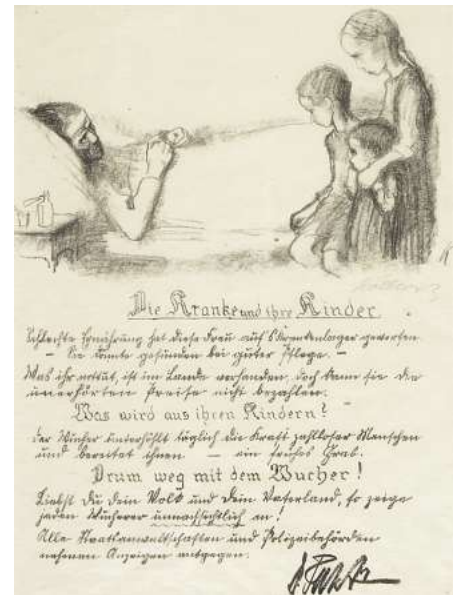 Die Kranke und ihre Kinder.
Schlechte Ernährung hat diese Frau auf's Krankenlager geworfen
— Sie könnte gesunden bei guter Pflege. —
Was ihr nottut, ist im Lande vorhanden, doch kann sie die
unerhörten Preise nicht bezahlen.
Was wird aus ihren Kindern?
Der Wucher unterhöhlt täglich die Kraft zahlloser Menschen
und bereitet ihnen — ein frühes Grab.
Drum weg mit dem Wucher!
Liebst Du dein Volk und Dein Vaterland, so zeige
jeden Wucherer unnachsichtlich an!
Alle Staatsanwaltschaften und Polizeibehörden
nehmen Anzeigen entgegen.